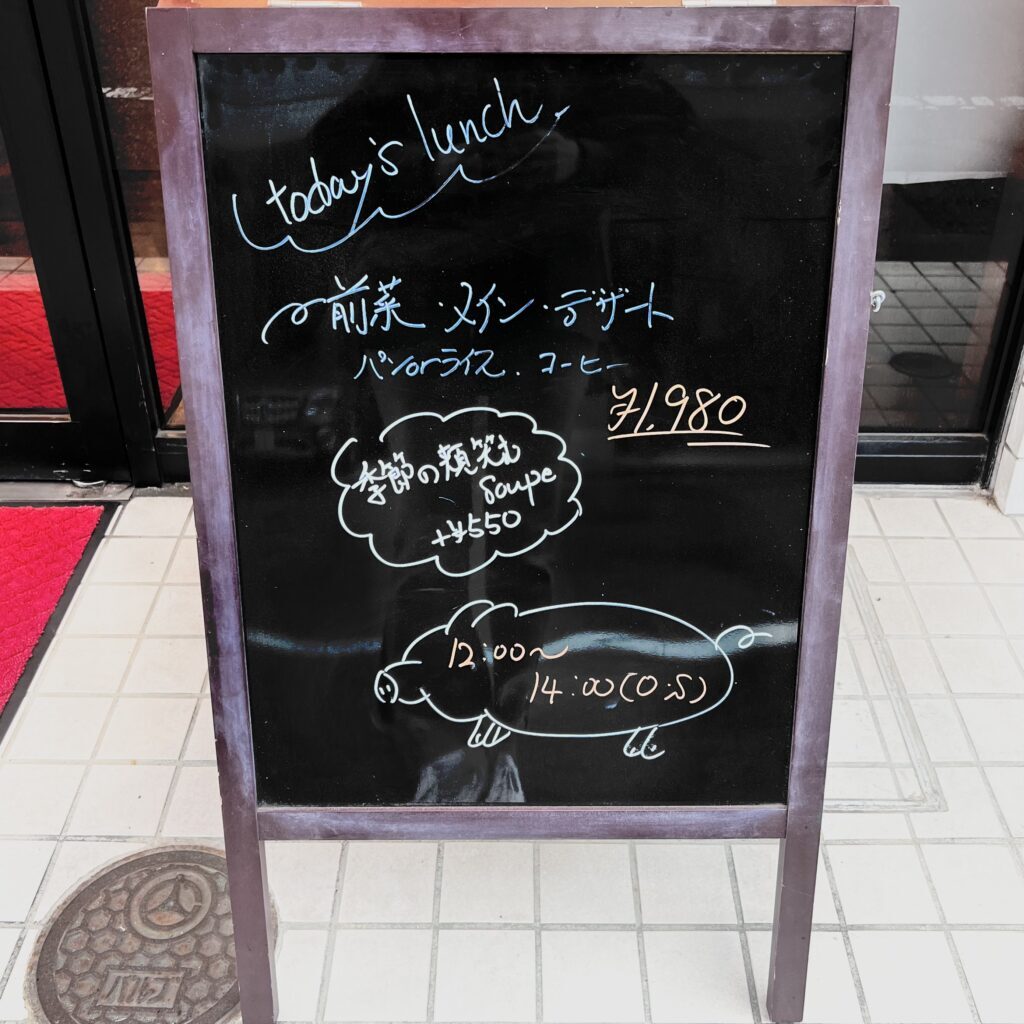 today's lunch
前菜・メイン・デザート
パンorライス、コーヒー
¥1,980
季節の
soupe
+¥550
12:00〜
14:00(O.S)
バルブ